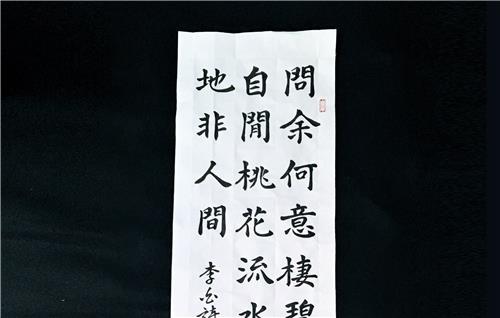 問余何意棲碧
自閒桃花流水
地非人間
李白詩